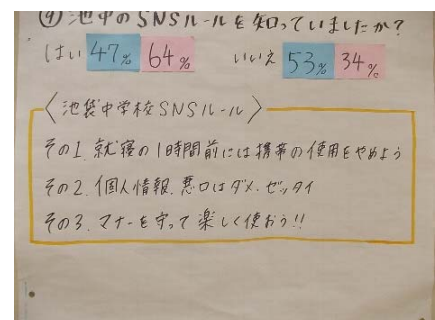 ⑨池中のSNSルールを知っていましたか?
はい 47% 64% いいえ 53% 34%
〈池袋中学校SNSルール〉
その1. 就寝の1時間前には携帯の使用をやめよう
その2. 個人情報、悪口はダメ、ゼッタイ
その3. マナーを守って楽しく使おう!!